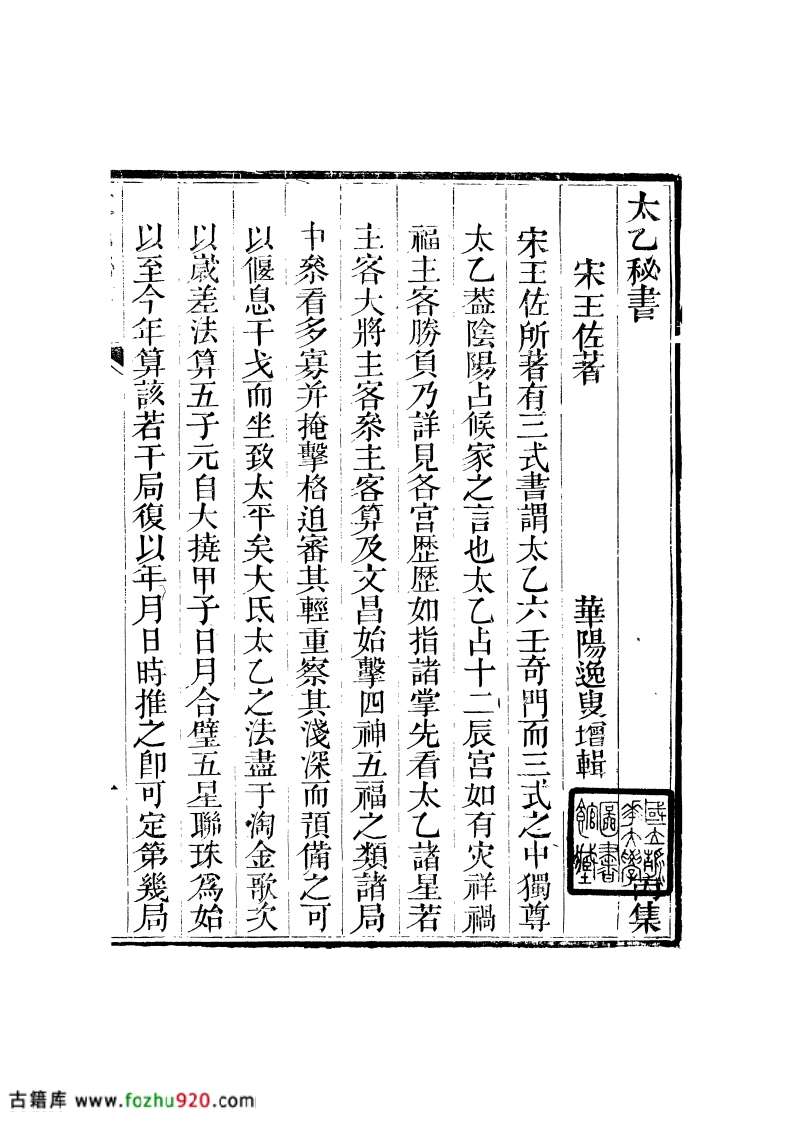 太乙秘書 集
宋王佐著 華陽逸叟增輯
宋王佐所著有三式書謂太乙六壬奇門而三式之中獨尊
太乙葢陰陽占候家之言也太乙占十二辰宮如有灾祥禍
福主客勝負乃詳見各宮歷歷如指諸掌先看太乙諸星若
主客大將主客叅主客算及文昌始擊四神五福之類諸局
中叅看多寡并掩擊格迫審其輕重察其淺深而預備之可
以偃息干戈而坐致太平矣大氐太乙之法盡于淘金歌次
以歲差法算五子元自大撓甲子日月合璧五星聯珠為始
以至今年算該若干局復以年月日時推之卽可定第幾局
國立清華大學圖書館藏
古籍库 www.fozhu920.com